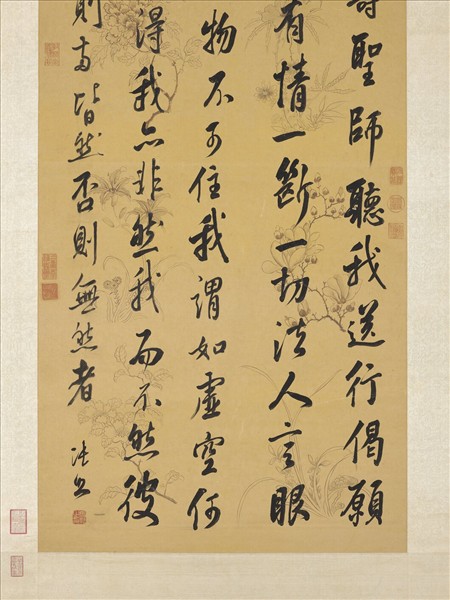 聖師聽我送行偈願
有情一斷一切法人言眼
物不可住我謂如虛空何
得我亦非然我而不然彼
則兩皆然否則無然者